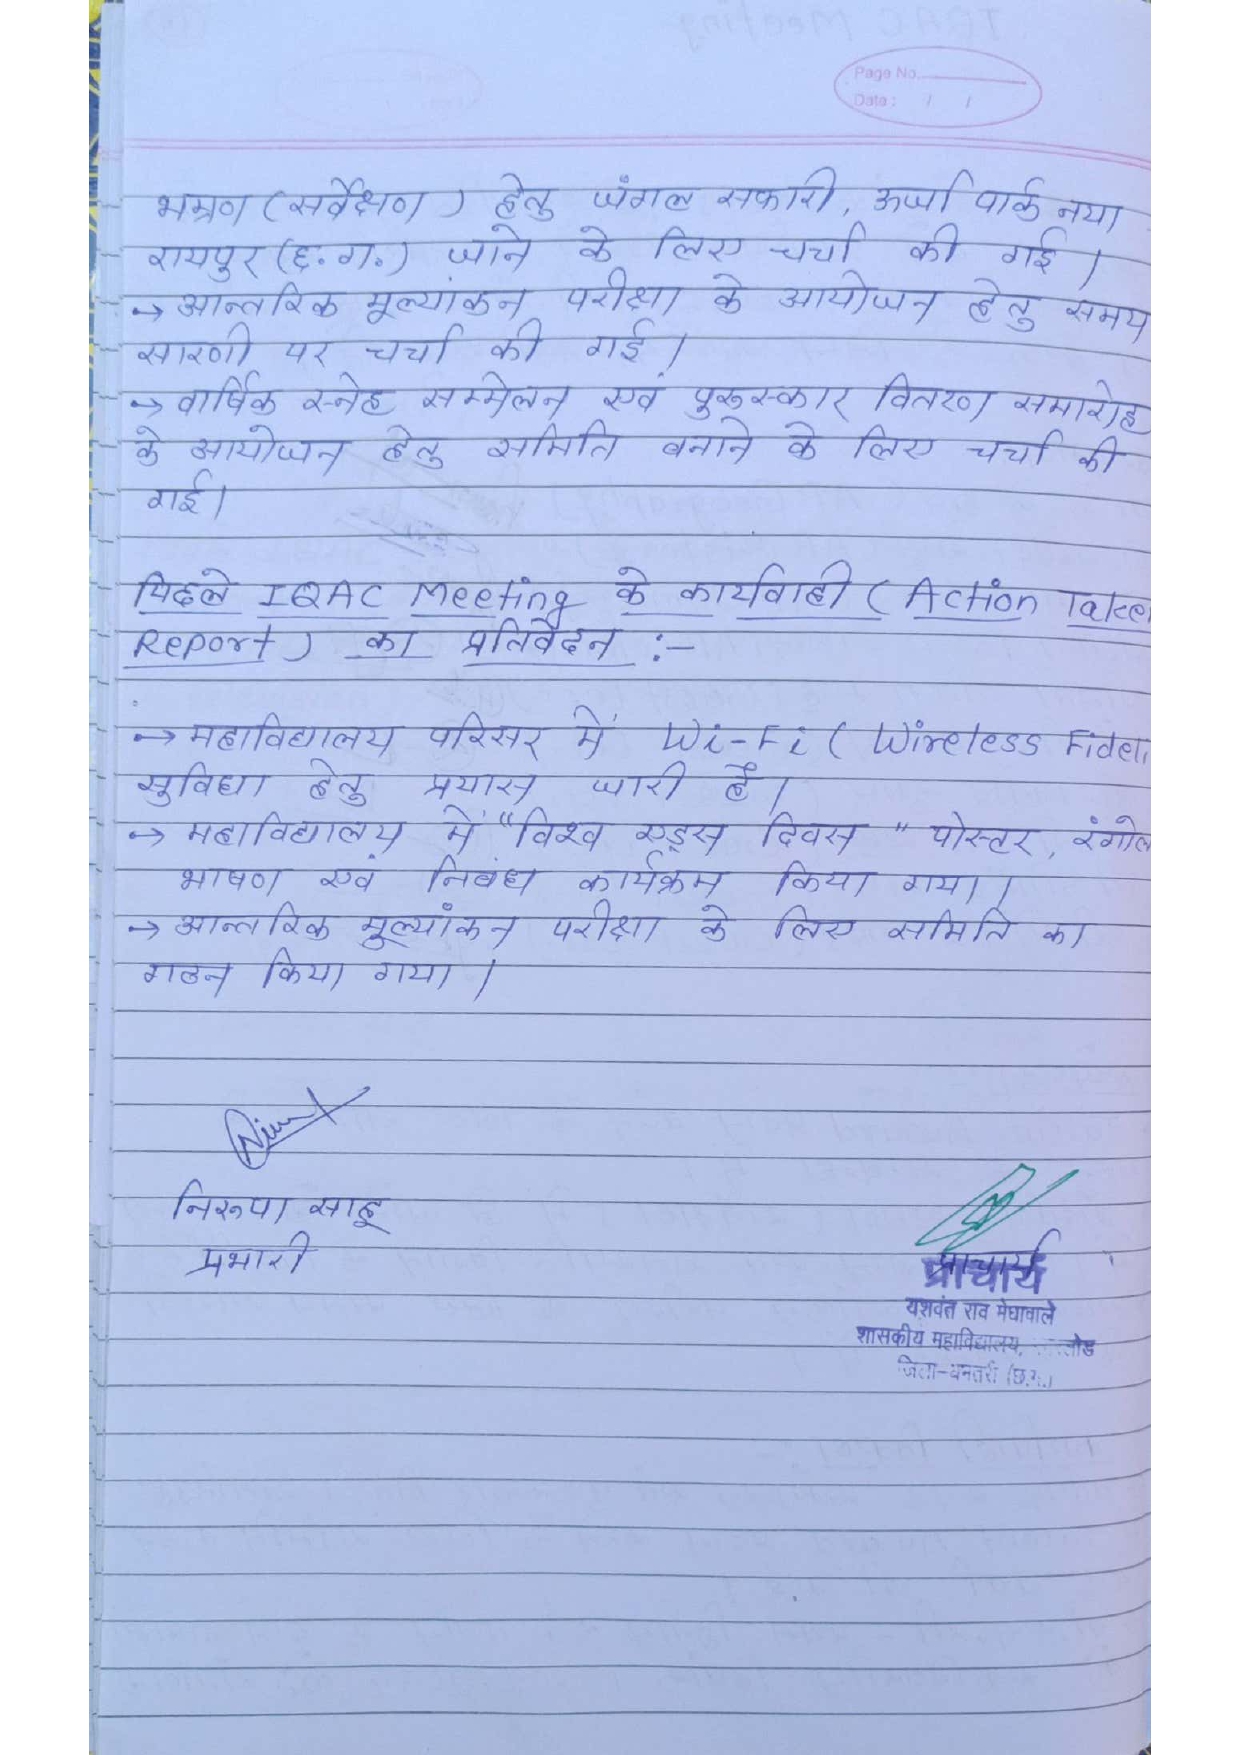 Page No.
Date : / /
भम्रण (सर्वेक्षण) हेतु जंगल सफारी, ऊर्जा पार्क नया
रायपुर (छ.ग.) जाने के लिए चर्चा की गई।
→ आन्तरिक मूल्यांकन परीक्षा के आयोजन हेतु समय
सारणी पर चर्चा की गई।
→ वार्षिक स्नेह सम्मेलन एवं पुरुस्कार वितरण समारोह
के आयोजन हेतु समिति बनाने के लिए चर्चा की
गई।
पिछले IQAC Meeting के कार्यवाही (Action Take
Report) का प्रतिवेदन :-
→ महाविद्यालय परिसर में Wi-Fi (Wireless Fideli
सुविधा हेतु प्रयास जारी है।
→ महाविद्यालय में "विश्व एड्स दिवस" पोस्टर, रंगोल
भाषण एवं निबंध कार्यक्रम किया गया।
→ आन्तरिक मूल्यांकन परीक्षा के लिए समिति का
गठन किया गया।
निरूपा साहू
प्रभारी
प्राचार्य
यशवंत राव मेघावाले
शासकीय महाविद्यालय,
जिला-धमतरी (छ.ग.)